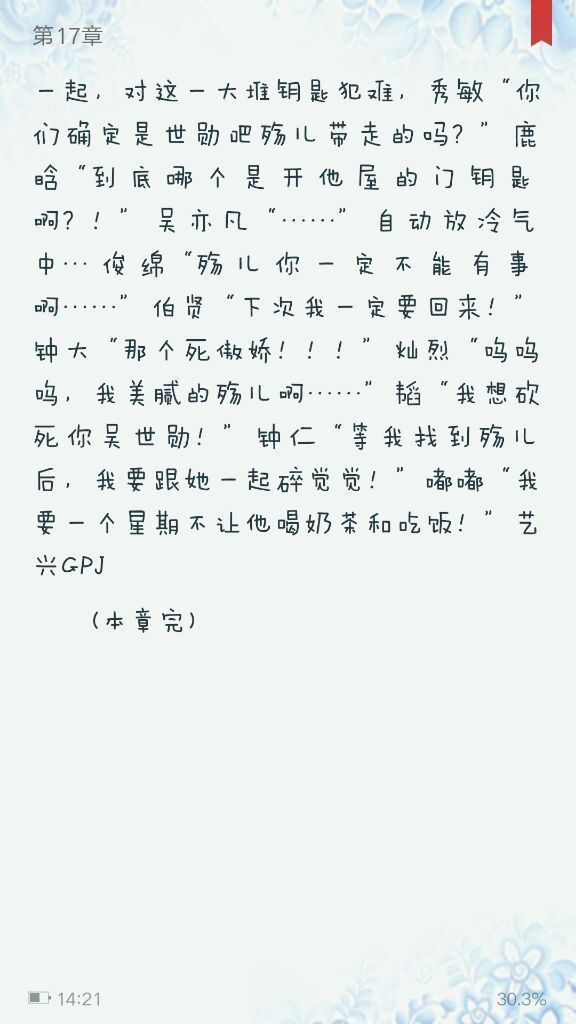 第17章
一起，对这一大堆钥匙犯难，秀敏“你
们确定是世勋吧殇儿带走的吗？”鹿
晗“到底哪个是开他屋的门钥匙
啊？！”吴亦凡“……”自动放冷气
中…俊绵“殇儿你一定不能有事
啊……”伯贤“下次我一定要回来！”
钟大“那个死傲娇！！！”灿烈“呜呜
呜，我美腻的殇儿啊……”韬“我想砍
死你吴世勋！”钟仁“等我找到殇儿
后，我要跟她一起碎觉觉！”嘟嘟“我
要一个星期不让他喝奶茶和吃饭！”艺
兴GPJ
（本章完）
14:21
30.3%